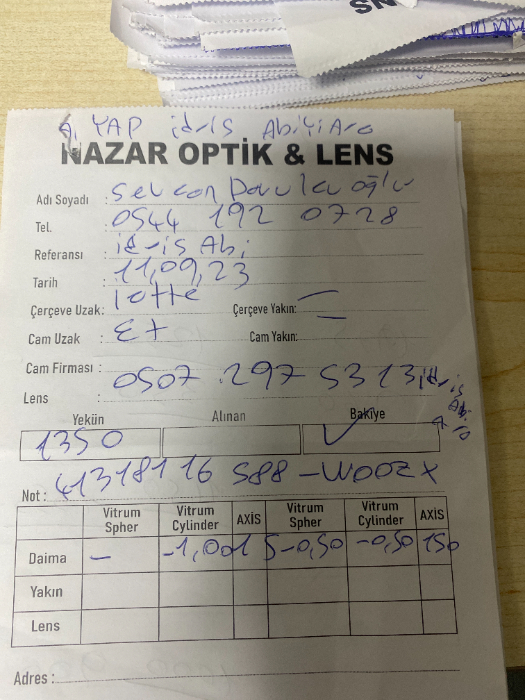 YAP idris Abiyi Ara
NAZAR OPTİK & LENS
Adı Soyadı : Serkan Davulcuoğlu
Tel. : 0544 192 0728
Referansı : idris Abi
Tarih : 11,09,23
Çerçeve Uzak: lotte Çerçeve Yakın: —
Cam Uzak : Ex Cam Yakın:
Cam Firması : 0507.297 5313 idris Abi
Lens :
Yekün Alınan Bakiye
1350
Not : 41318116 588-WOOZX
Vitrum Spher Vitrum Cylinder AXİS Vitrum Spher Vitrum Cylinder AXİS
Daima — -1,00 15 -0,50 -0,50 150
Yakın
Lens
Adres :